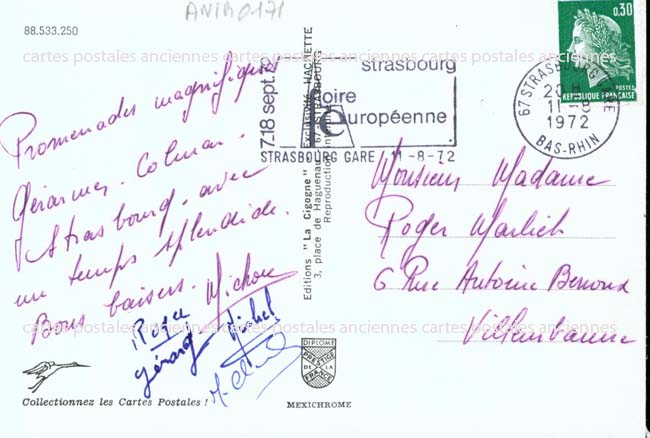 ANIM0171
88.533.250
cartes postales anciennes cartes postales anciennes cartes postales anciennes
Promenades magnifiques
Gérarmer. Colmar.
Strasbourg. avec
un temps splendide.
Bons baisers. Michou
Roger
Michel
Gérard
Editions "La Cigogne" Exclusivité HACHETTE
3, place de Haguenau 67-STRASBOURG
Reproduction interdite
7-18 sept. 72
strasbourg
foire
européenne
STRASBOURG GARE 11-8-72
67 STRASBOURG GARE
20 H
11-8
1972
BAS-RHIN
0.30
POSTES
REPUBLIQUE FRANÇAISE
Monsieur Madame
Roger Marlich
6 Rue Antoine Bernoux
Villeurbanne
cartes postales anciennes cartes postales anciennes cartes postales anciennes
Collectionnez les Cartes Postales !
DIPLOME
PRESTIGE
DE LA
FRANCE
MEXICHROME